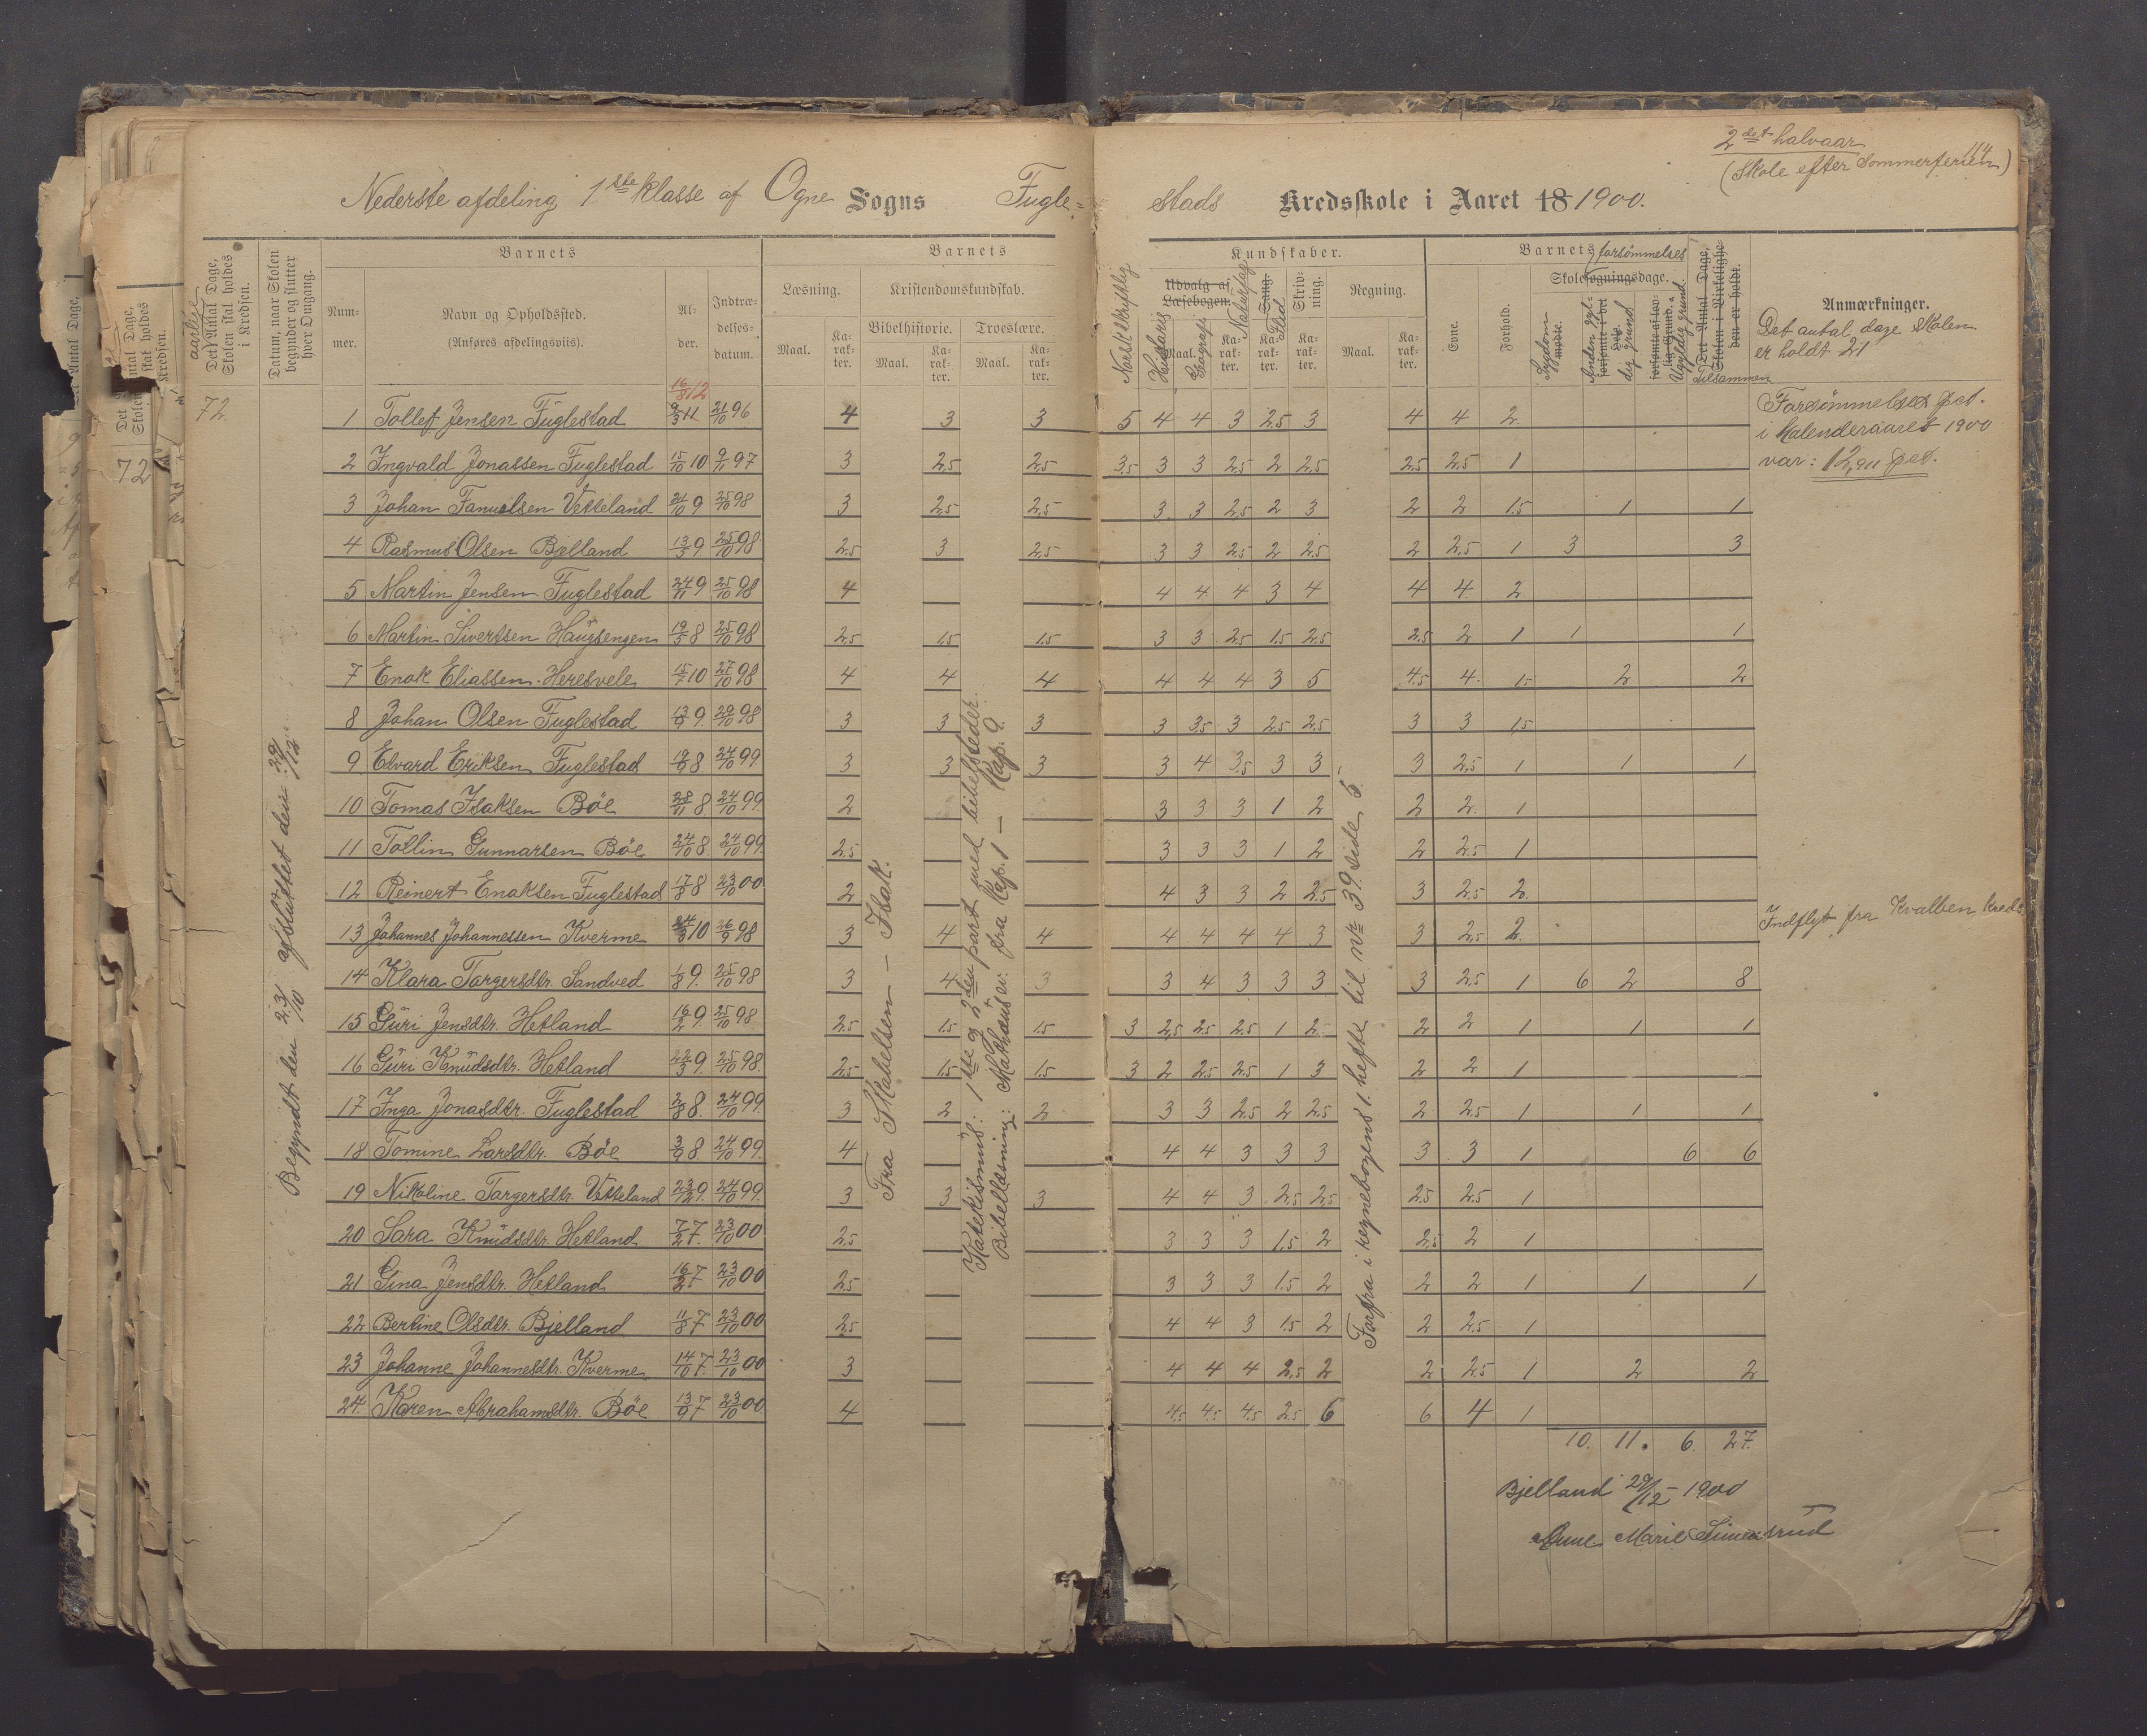 2det halvaar
(Skole efter Sommerferien)
114
Nederste afdeling 1ste klasse af Ogne Sogns Fugle=
stads Kredsskole i Aaret 18 1900.
aarlig
Det Antal Dage, Skolen skal holdes i Kredsen.
Datum, naar Skolen begynder og slutter hver Omgang.
Barnets
Num-mer.
Navn og Opholdssted.
(Anføres afdelingsviis).
Al-der.
Indtræ-delses-datum.
Barnets
Læsning.
Kristendomskundskab.
Bibelhistorie. Troeslære.
Maal. Ka-rak-ter. Maal. Ka-rak-ter. Maal. Ka-rak-ter.
Norsk skriftlig
Kundskaber.
Udvalg af Læsebogen.
Historie
Maal.
Geografi
Ka-rak-ter.
Naturfag
Sang.
Flid
Ka-rak-ter.
Skriv-ning.
Ka-rak-ter.
Regning.
Maal. Ka-rak-ter.
Barnets forsømmelses
Evne. Forhold.
Skolesøgningsdage.
Sygdom
møtte.
Anden gyl-dig grund
forsømte i det Hele.
forsømte af lov-lig Grund.
Ugyldig grund.
Det Antal Dage, Skolen i Virkelighe-den er holdt.
Tilsammen
Anmærkninger.
Det antal dage skolen
er holdt 21
Forsømmelses pct.
i Kalenderaaret 1900
var: 12,911 pct.
72
Begyndt den 23/10 afsluttet den 29/12
16/8 12
1 Tollef Jensen Fuglestad 9/3 11 21/10 96 4 3 3 5 4 4 3 2.5 3 4 4 2
2 Ingvald Jonassen Fuglestad 15/10 10 9/11 97 3 2,5 2,5 3,5 3 3 2,5 2 2,5 2,5 2,5 1
3 Johan Fanuelsen Vetteland 21/10 9 25/10 98 3 2,5 2,5 3 3 2,5 2 3 2 2 1,5 1 1
4 Rasmus Olsen Bjelland 13/5 9 25/10 98 2,5 3 2,5 3 3 2,5 2 2,5 2 2,5 1 3 3
5 Martin Jensen Fuglestad 24/11 9 25/10 98 4 4 4 4 3 4 4 4 2
6 Martin Sivertsen Haugsengen 19/5 8 25/10 98 2,5 1,5 1,5 3 3 2,5 1,5 2,5 2,5 2 1 1 1
7 Enok Eliassen Heresvele 15/7 10 27/10 98 4 4 4 4 4 4 3 5 4,5 4 1,5 2 2
8 Johan Olsen Fuglestad 13/9 9 29/10 98 3 3 3 3 3,5 3 2,5 2,5 3 3 1,5
9 Edvard Eriksen Fuglestad 19/9 8 24/10 99 3 3 3 3 4 3,5 3 3 3 2,5 1 1 1
10 Tomas Isaksen Böe 28/11 8 24/10 99 2 3 3 3 1 2 2 2 1
11 Tollin Gunnarsen Böe 24/10 8 24/10 99 2,5 3 3 3 1 2 2 2,5 1
12 Reinert Enoksen Fuglestad 17/8 8 23/10 00 2 4 3 3 2 2,5 3 2,5 2
13 Johannes Johannessen Kverme 24/3 10 26/9 98 3 4 4 4 4 4 4 3 3 2,5 2 Indflyt fra Kvalben Kreds
14 Klara Torgersdtr. Sandved 1/8 9 25/10 98 3 4 3 3 4 3 3 3 3 2,5 1 6 2 8
15 Guri Jensdtr. Hetland 16/2 9 25/10 98 2,5 1,5 1,5 3 2,5 2,5 2,5 1 2 2 2 1 1 1
16 Guri Knudsdtr. Hetland 22/3 9 25/10 98 2,5 1,5 1,5 3 2 2,5 2,5 1 3 2 2 1
17 Inga Jonasdtr. Fuglestad 2/8 8 24/10 99 3 2 2 3 3 2,5 2 2,5 2 2,5 1 1 1
18 Tomine Larsdtr. Böe 3/9 8 24/10 99 4 4 4 3 3 3 3 3 1 6 6
19 Nikoline Torgersdtr. Vetteland 23/12 9 24/10 99 3 3 3 4 4 3 2,5 2,5 2,5 2,5 1
20 Sara Knudsdtr. Hetland 7/2 7 23/10 00 2,5 3 3 3 1,5 2 2,5 2 1
21 Gina Jensdtr. Hetland 16/2 7 23/10 00 2,5 3 3 3 1,5 2 2 2 1 1 1
22 Bertine Olsdtr. Bjelland 11/8 7 23/10 00 2,5 4 4 3 1,5 2 2 2,5 1
23 Johanne Johannesdtr. Kverme 14/10 7 23/10 00 3 4 4 4 2,5 2 2 2,5 1 2 2
24 Karen Abrahamsdtr. Böe 13/9 7 23/10 00 4 4,5 4,5 4,5 2,5 6 6 4 1
Fra Skabelsen – Isak.
Katekismus: 1ste og 2den part med bibelsteder.
Bibellæsning: Mathæus ev: fra Kap. 1 – Kap. 9.
Forfra i regnebogens 1. hefte til Nr 39. side 5.
10. 11. 6. 27.
Bjelland 29/12 1900
Anne Marie Simensrud
Det Antal Dage,
72